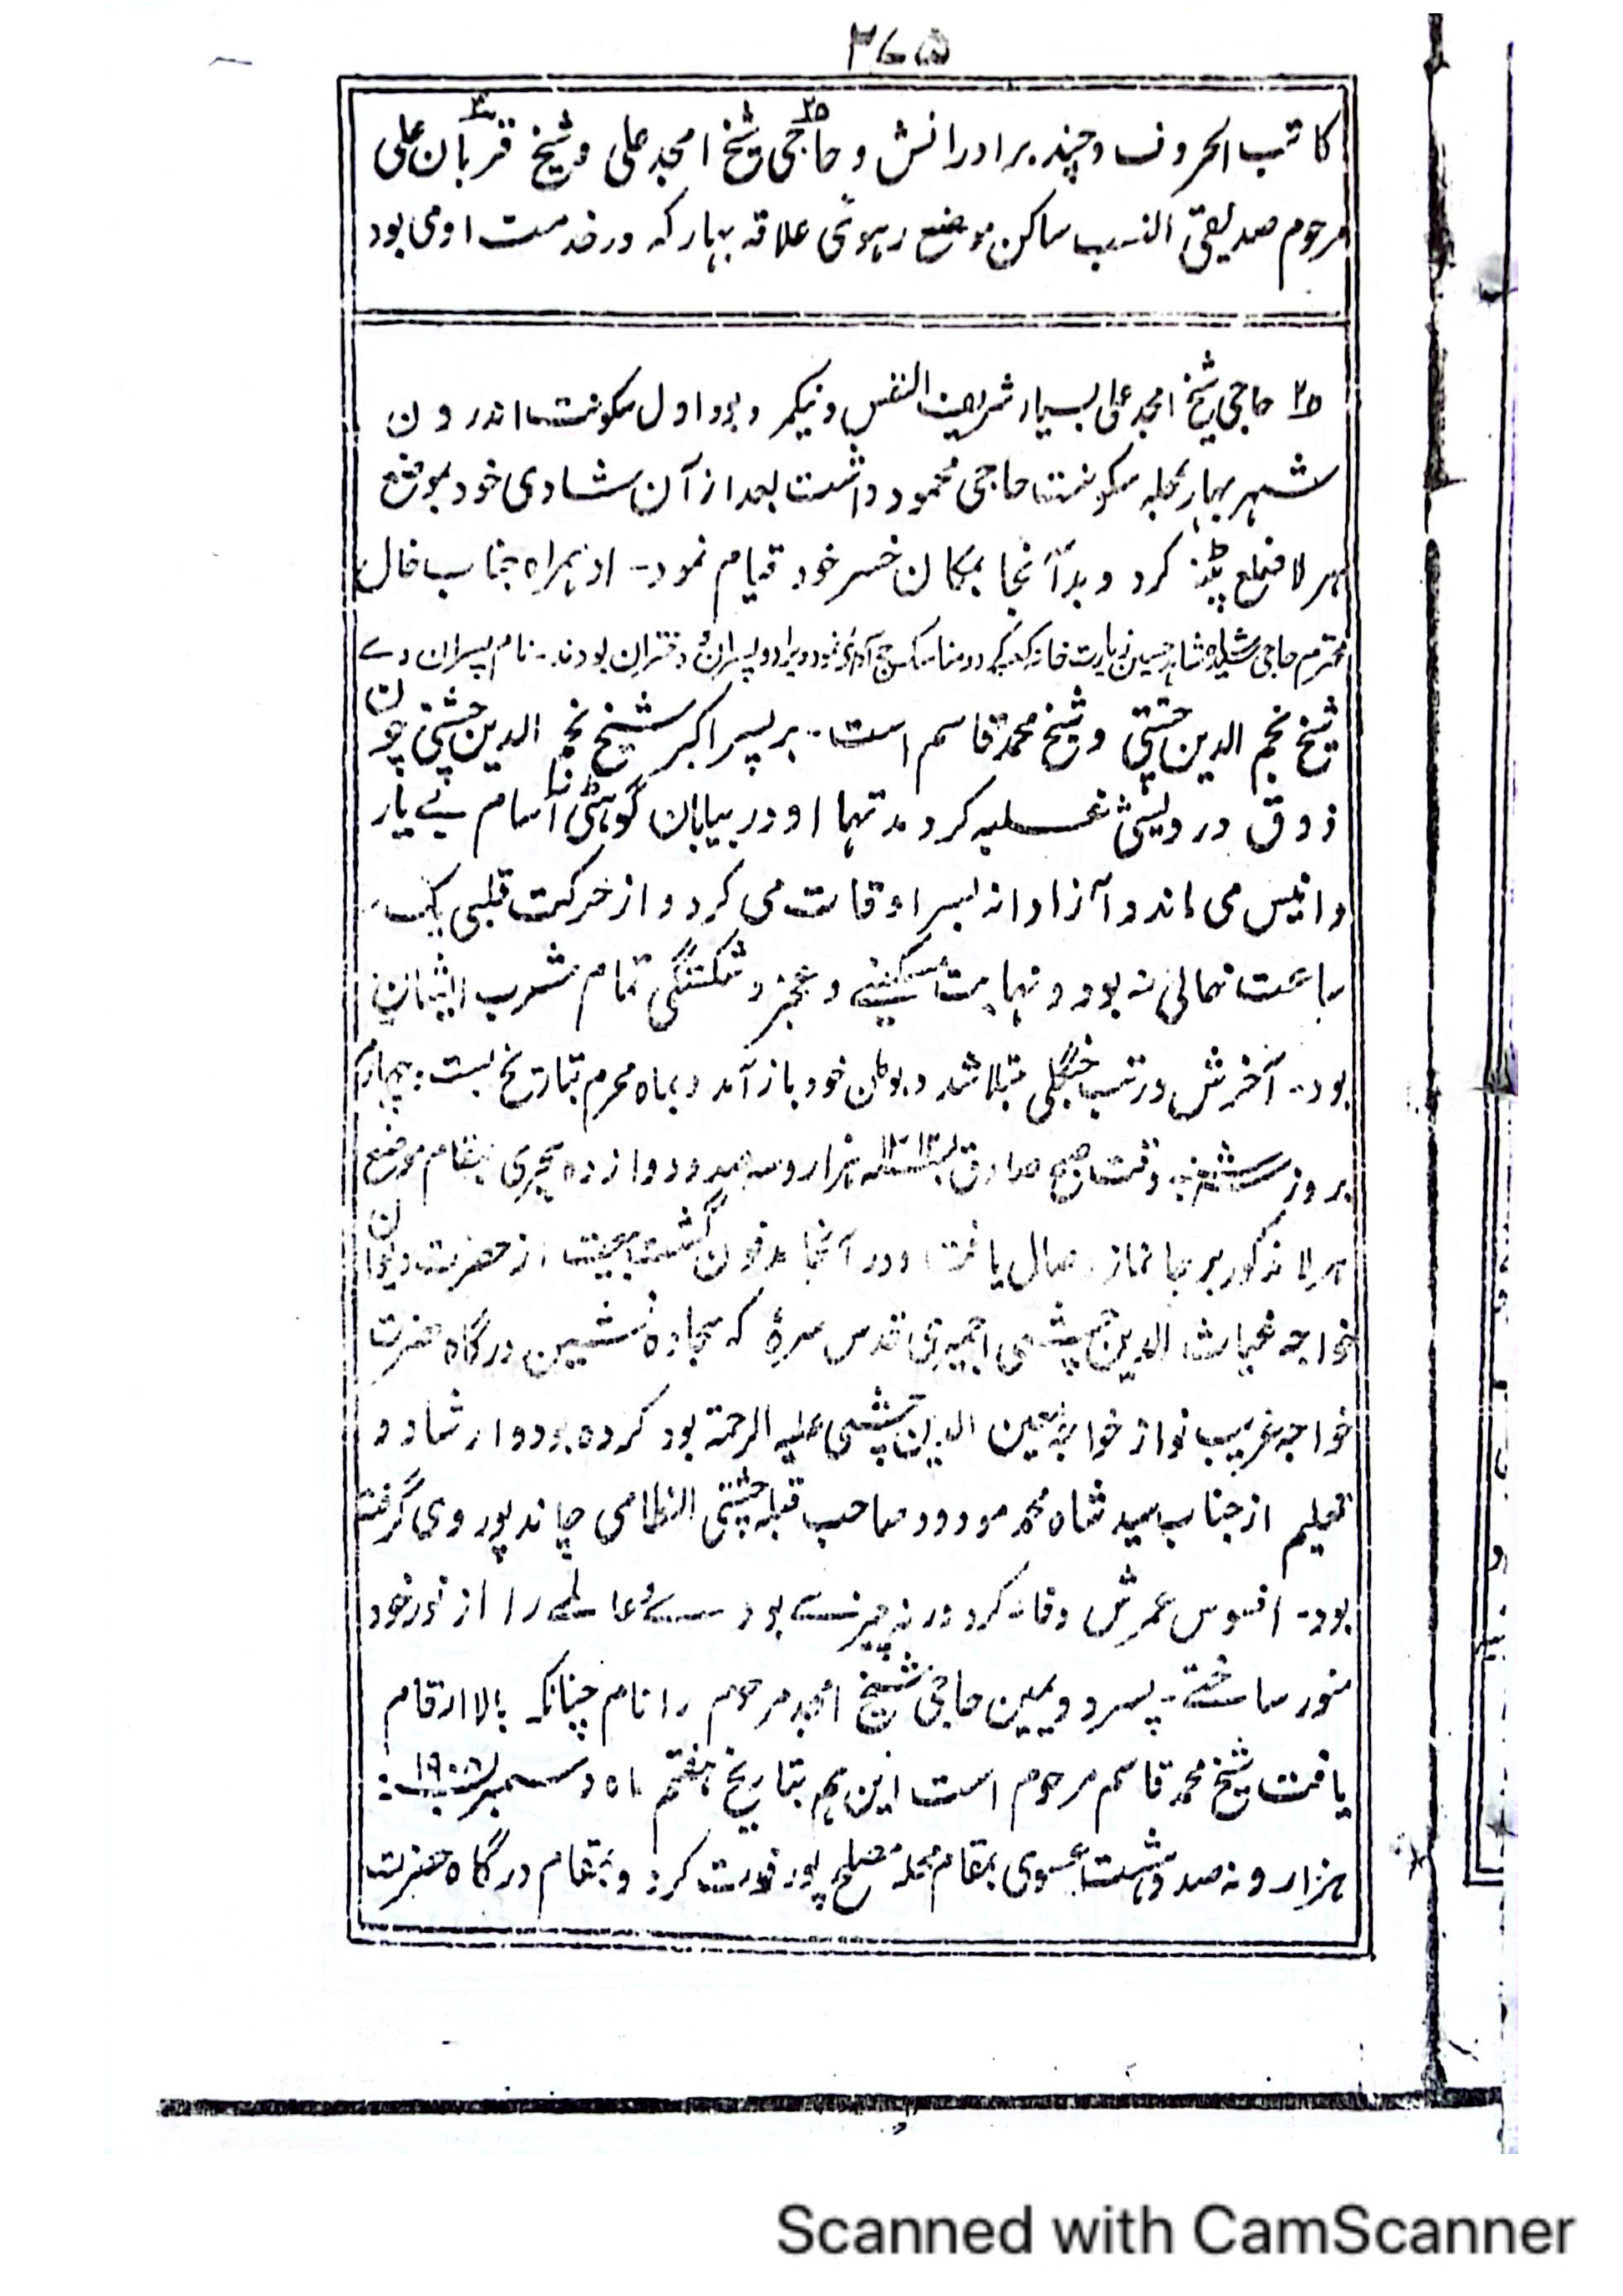 ۳۷۵
کاتب الحروف و چند برادرانش و حاجی شیخ امجد علی و شیخ قربان علی
مرحوم صدیقی النسب ساکن موضع رہوئی علاقہ بہار کہ در خدمت او می بود
حاجی شیخ امجد علی بسیار شریف النفس و نیکمرد بود اول سکونت اندرون
شہر بہار محلہ سکونت حاجی محمود داشت بعد از آن شادی خود بموضع
ہرلا ضلع پٹنہ کرد و بدآنجا بمکان خسر خود قیام نمود - او ہمراہ جناب خال
محترم حاجی سید شاہد حسین زیارت خانہ کعبہ کرد و مناسک حج آدا نمود و ویرا دو پسران و دختران بودند - نام پسران وے
شیخ نجم الدین چشتی و شیخ محمد قاسم است - بر پسر اکبر شیخ نجم الدین چشتی چون
ذوق درویشی غلبہ کرد مدتہا او در بیابان گوہٹی آسام بے یار
و انیس می ماند و آزادانہ بسر اوقات می کرد و از حرکت قلبی یک
ساعت خالی نہ بود و نہایت مسکینے و عجز و شکستگی تمام مشرب ایشان
بود - آخرش در تب جنگلی مبتلا شد و بوطن خود باز آمد و بماہ محرم بتاریخ بست و چہارم
بروز شنبہ وقت صبح صادق ۱۳۱۲ ہزار و سہ صد و دوازدہ ہجری بمقام موضع
ہرلا مذکور بر جا نماز وصال یافت و در آنجا مدفون گشت بیعت از حضرت دیوان
خواجہ غیاث الدین چشتی اجمیری قدس سرہٗ کہ سجادہ نشین درگاہ حضرت
خواجہ غریب نواز خواجہ معین الدین چشتی علیہ الرحمۃ بود کردہ بود و ارشاد و
تعلیم از جناب سید شاہ محمد مودود صاحب قبلہ چشتی النظامی چاندپوروی گرفتہ
بود - افسوس عمرش وفا نہ کرد ورنہ چیزے بودے و عالمے را از نور خود
منور ساختے - پسر دویمین حاجی شیخ امجد مرحوم را نام چنانکہ بالا ارقام
یافت شیخ محمد قاسم مرحوم است این ہم بتاریخ ہفتم ماہ دسمبر ۱۹۰۸
ہزار و نہ صد و ہشت عیسوی بمقام محلہ مصلح پور فوت کرد و بمقام درگاہ حضرت
Scanned with CamScanner